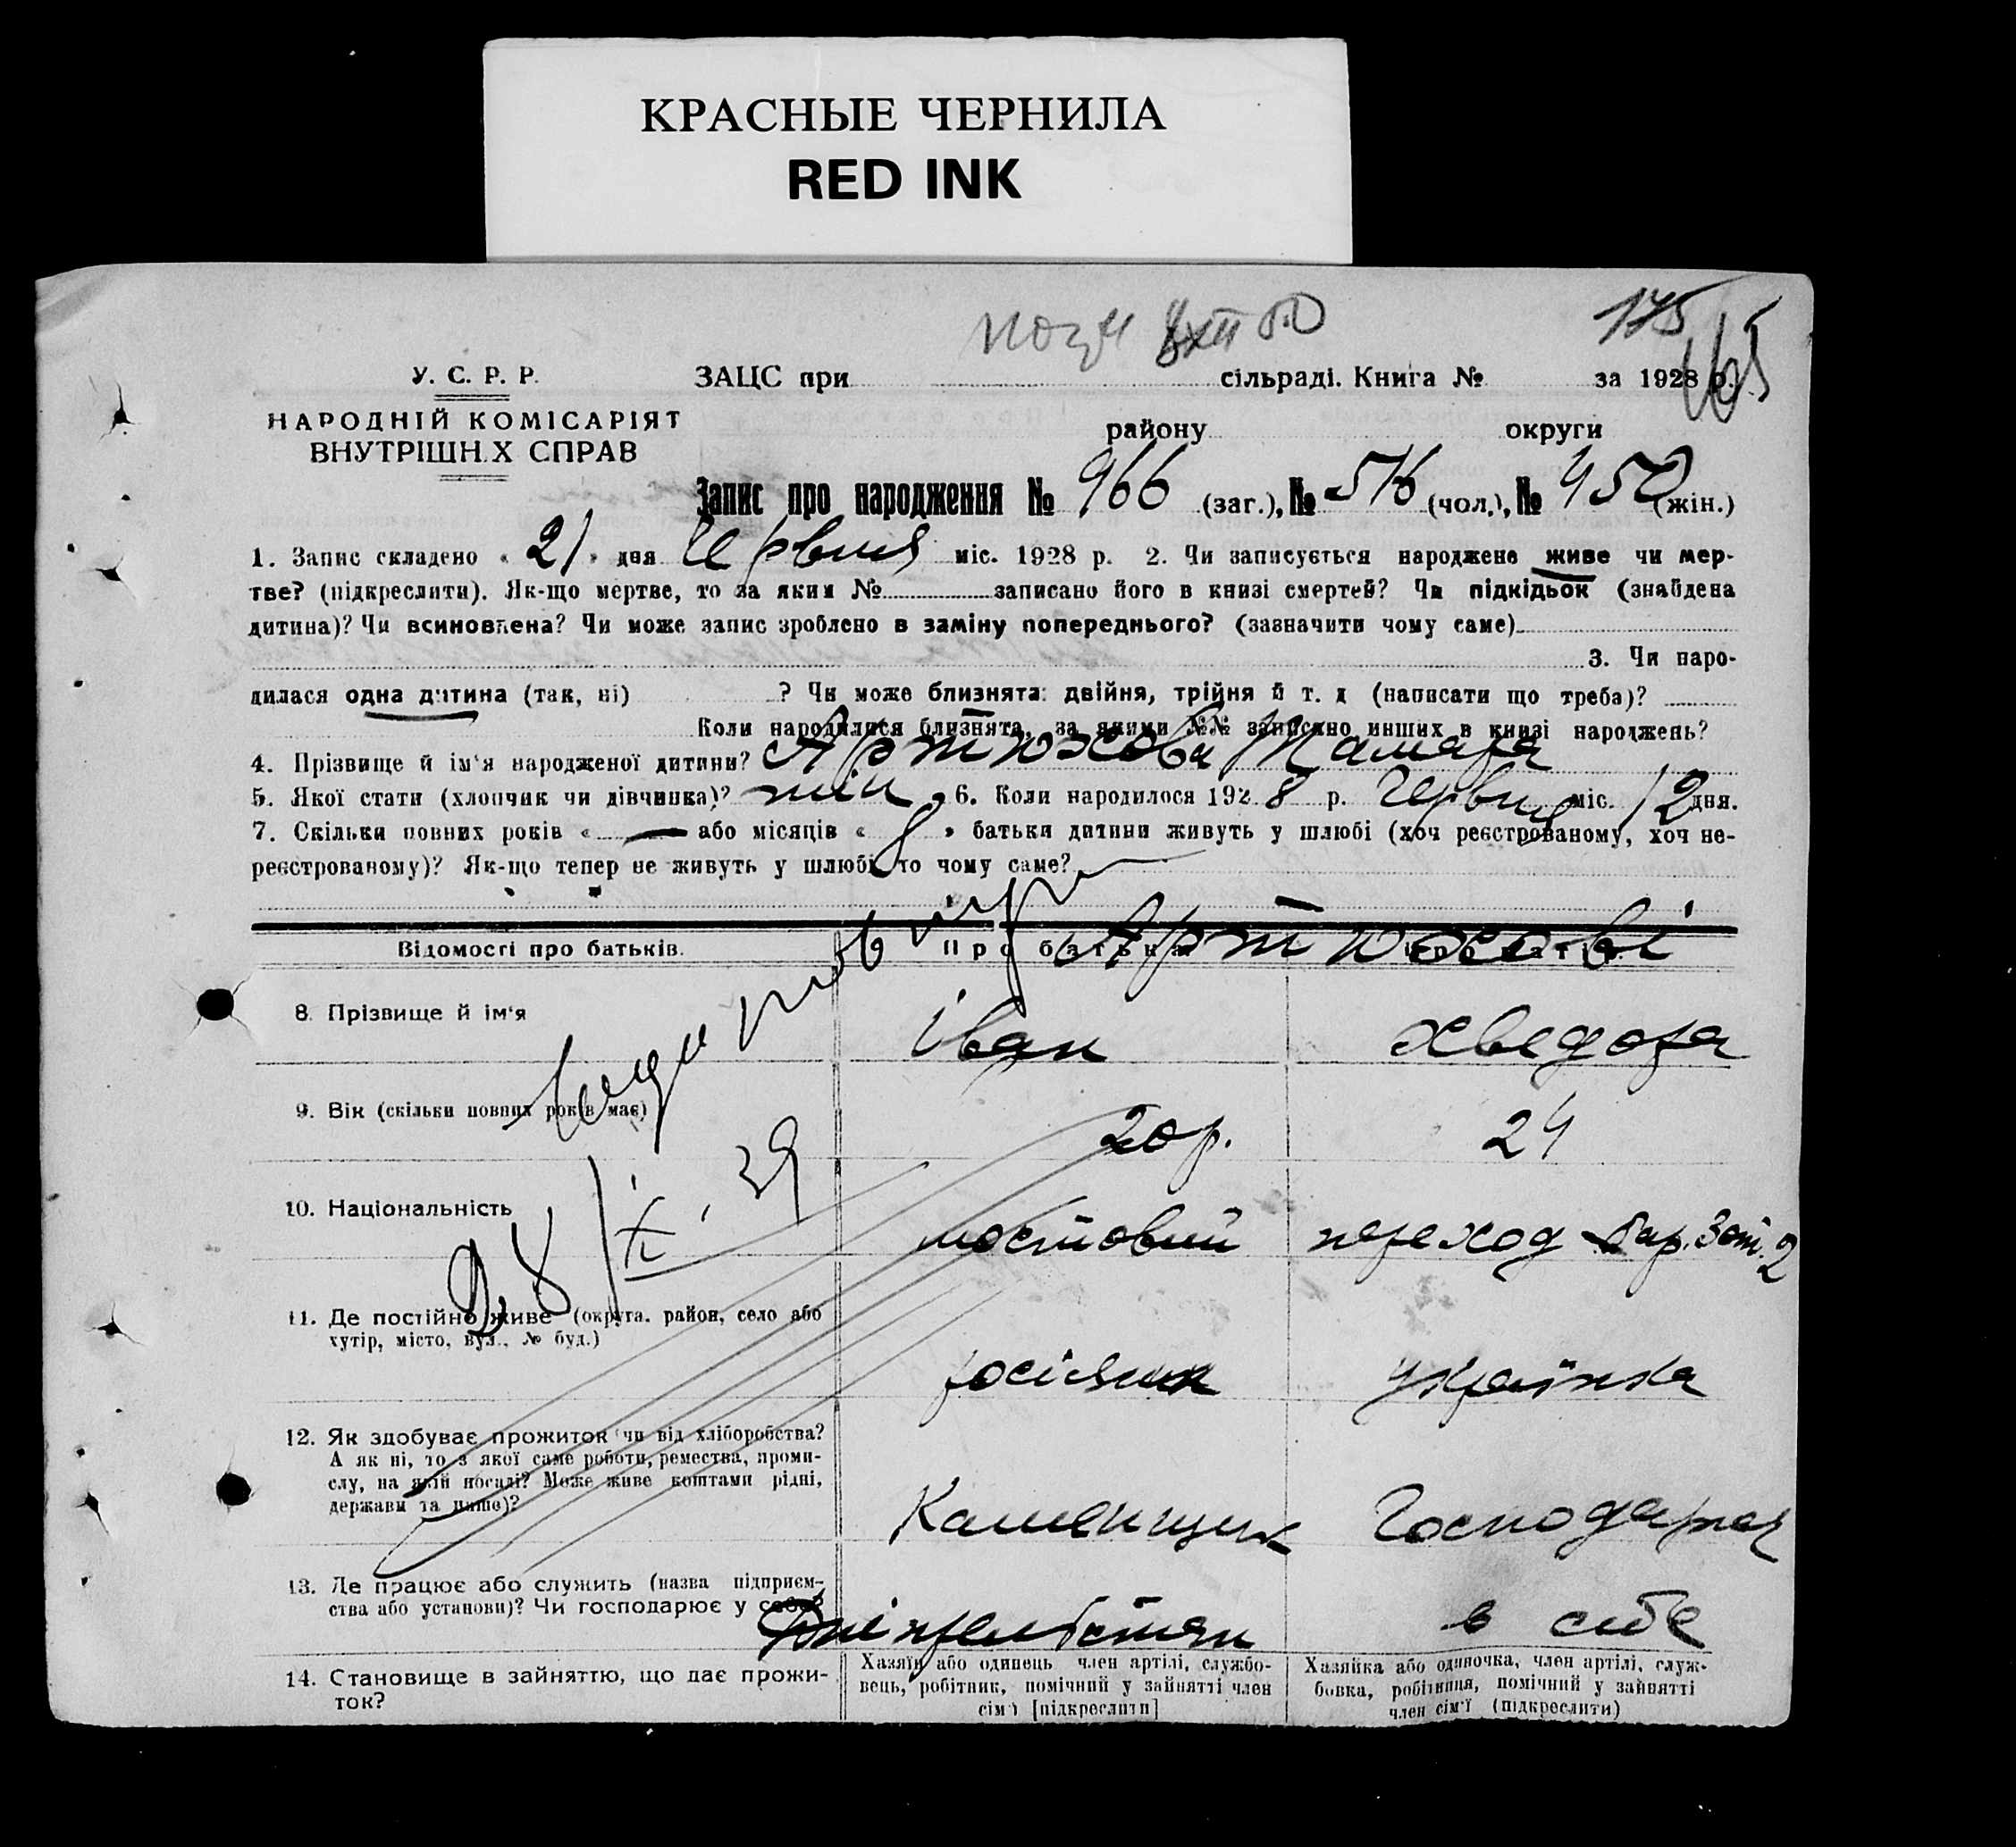 КРАСНЫЕ ЧЕРНИЛА
RED INK
175
165
У. С. Р. Р.
НАРОДНІЙ КОМІСАРІЯТ
ВНУТРІШН.Х СПРАВ
ЗАЦС при сільраді. Книга № за 1928 р.
району округи
Запис про народження № 966 (заг.), № 516 (чол.), № 450 (жін.)
1. Запис складено « 21 » дня Червня міс. 1928 р. 2. Чи записується народжене живе чи мер-
тве? (підкреслити). Як-що мертве, то за яким № записано його в книзі смертей? Чи підкідьок (знайдена
дитина)? Чи всиновлена? Чи може запис зроблено в заміну попереднього? (зазначити чому саме)
3. Чи наро-
дилася одна дитина (так, ні) ? Чи може близнята: двійня, трійня й т. д (написати що треба)?
Коли народилися близнята, за якими №№ записано инших в книзі народжень?
4. Прізвище й ім'я народженої дитини? Артюхова Тамара
5. Якої стати (хлопчик чи дівчинка)? жін. 6. Коли народилося 1928 р. Червня міс. 12 дня.
7. Скільки повних років « — » або місяців « 8 » батьки дитини живуть у шлюбі (хоч реєстрованому, хоч не-
реєстрованому)? Як-що тепер не живуть у шлюбі то чому саме?
Відомості про батьків. Про батька Артюхові
8. Прізвище й ім'я Іван Хведора
9. Вік (скільки повних років має) 20 р. 24
28/IX 39
10. Національність мостовий переход бар. 3 от. 2
11. Де постійно живе (округа. район, село або
хутір, місто, вул., № буд.)
росіянин українка
12. Як здобуває прожиток чи від хліборобства?
А як ні, то з якої саме роботи, ремества, проми-
слу, на якій посаді? Може живе коштами рідні,
держави та инше)?
Каменщик Господарка
13. Де працює або служить (назва підприєм-
ства або установи)? Чи господарює у себе?
Дніпрельбстан в себе
14. Становище в зайняттю, що дає прожи-
ток?
Хазяїн або одинець член артілі, службо-
вець, робітник, помічний у зайнятті член
сім'ї [підкреслити]
Хазяйка або одиночка, член артілі, служ-
бовка, робітниця, помічний у зайнятті
член сім'ї (підкреслити)